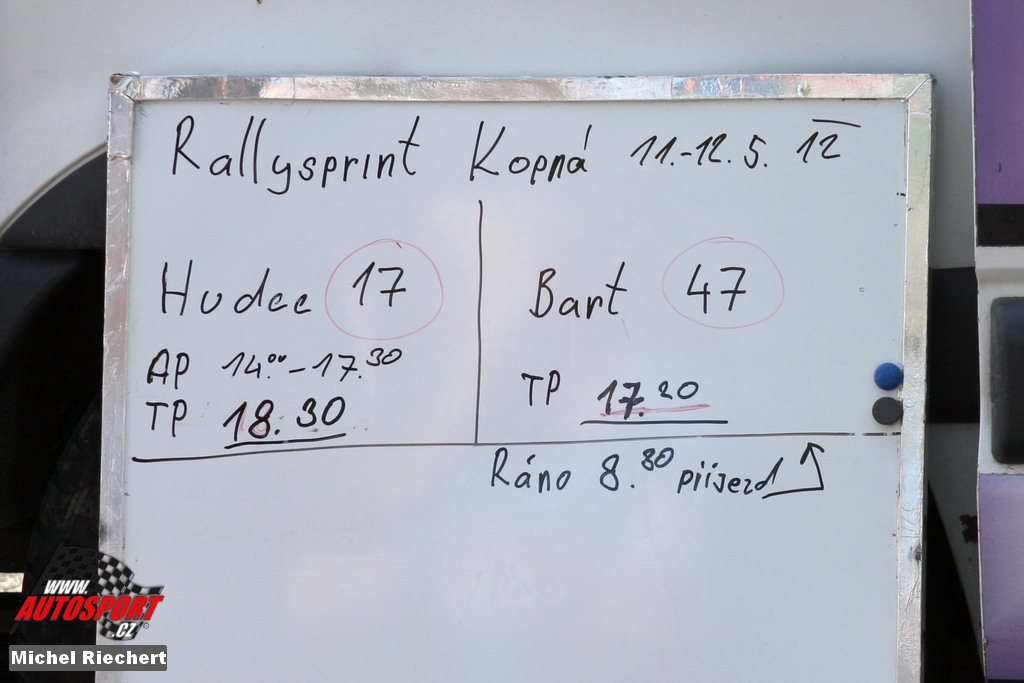 Rallysprint Kopná 11.-12. 5. 12
Hudec 17
AP 14.00-17.30
TP 18.30
Bart 47
TP 17.20
Ráno 8.30 příjezd
WWW.
AUTOSPORT
.CZ
Michel Riechert